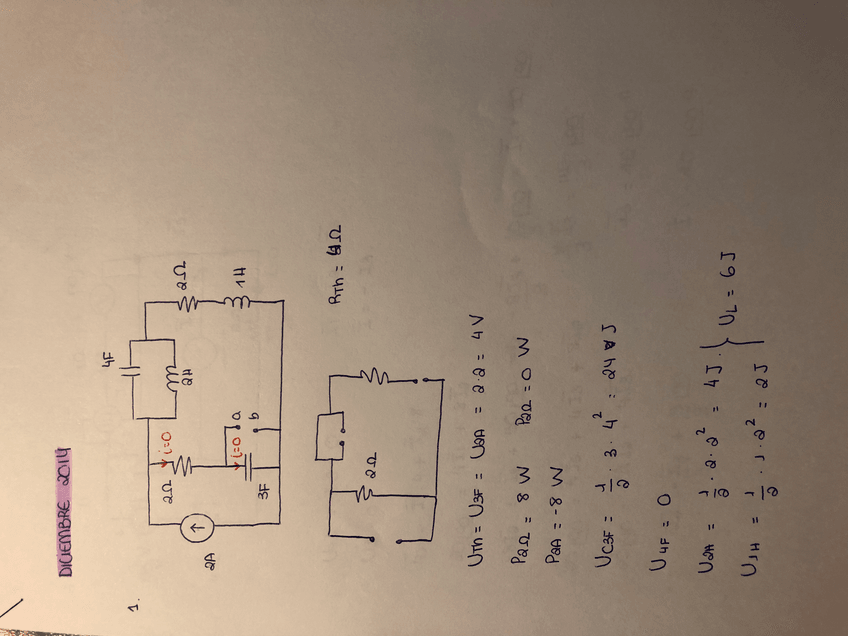 DICIEMBRE 2014
1.
4F
2H
2Ω
1H
2Ω
i=0
i=0
a
b
3F
2A
2Ω
RTh = 4Ω
UTh = U3F = U2A = 2·2 = 4 V
P2Ω = 8 W P2Ω = 0 W
P2A = -8 W
UC3F = 1/2 · 3 · 4² = 24 J
U4F = 0
U2H = 1/2 · 2 · 2² = 4 J.
U1H = 1/2 · 1 · 2² = 2 J
UL = 6 J